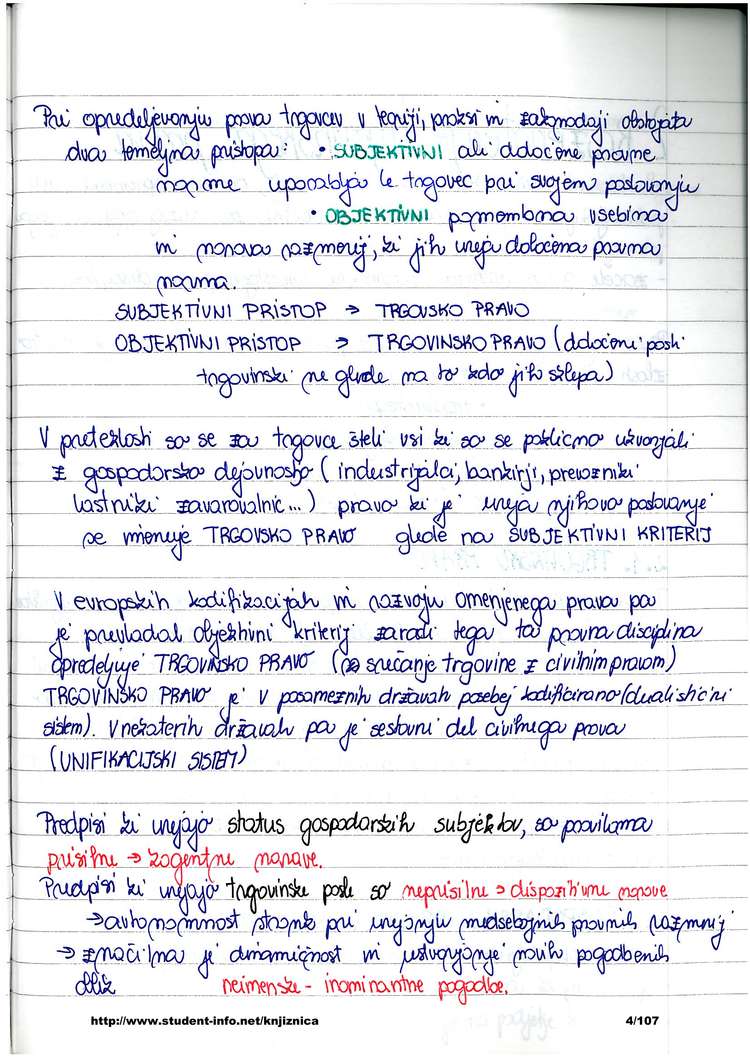 Pri opredeljevanju prava trgovcev v teoriji, praksi in zakonodaji obstajata
dva temeljna pristopa: • SUBJEKTIVNI ali določene pravne
norme uporablja le trgovec pri svojem poslovanju
• OBJEKTIVNI pomembna vsebina
in narava razmerij, ki jih ureja določena pravna
norma.
SUBJEKTIVNI PRISTOP → TRGOVSKO PRAVO
OBJEKTIVNI PRISTOP → TRGOVINSKO PRAVO (določeni posli
trgovinski ne glede na to kdo jih sklepa)
V pretežlosti so se za trgovce šteli vsi ki so se poklicno ukvarjali
z gospodarsko dejavnostjo (industrijalci, bankirji, prevozniki
lastniki zavarovalnic...) pravo ki je ureja njihovo poslovanje
se imenuje TRGOVSKO PRAVO glede na SUBJEKTIVNI KRITERIJ
V evropskih kodifikacijah in razvoju omenjenega prava pa
je prevladal objektivni kriterij zaradi tega ta pravna disciplina
opredeljuje TRGOVINSKO PRAVO (srečanje trgovine z civilnim pravom)
TRGOVINSKO PRAVO je v posameznih državah posebej kodificirano (dualistični
sistem). V nekaterih državah pa je sestavni del civilnega prava
(UNIFIKACIJSKI SISTEM)
Predpisi ki urejajo status gospodarskih subjektov, so praviloma
prisilne → kogentne narave.
Predpisi ki urejajo trgovinske posle so neprisilne → dispozitivne narave
→ avtonomnost strank pri urejanju medsebojnih pravnih razmerij
→ značilna je dinamičnost in ustvarjanje novih pogodbenih
oblik neimenske - inominantne pogodbe.
http://www.student-info.net/knjiznica 4/107